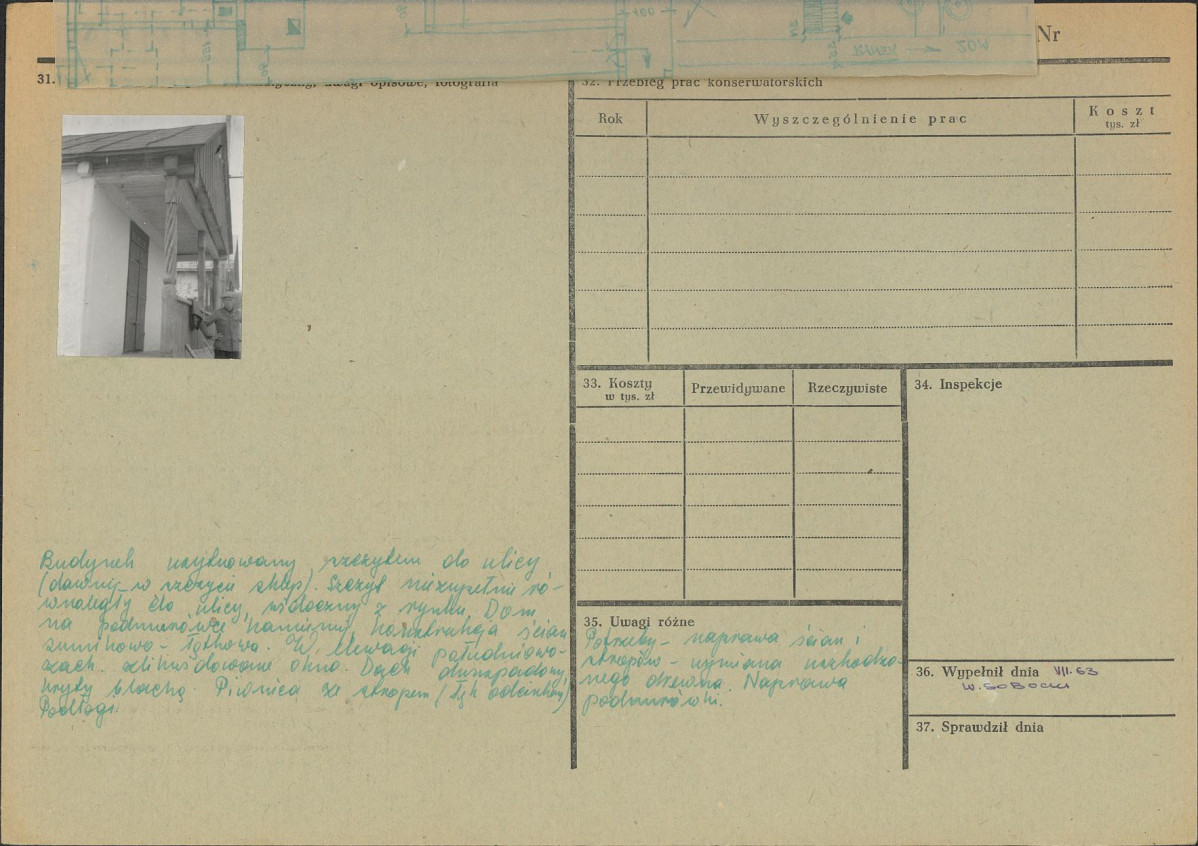 Nr
31.
uwagi opisowe, fotografia
32. Przebieg prac konserwatorskich
Rok
Wyszczególnienie prac
Koszt
tys. zł
33. Koszty
w tys. zł
Przewidywane
Rzeczywiste
34. Inspekcje
Budynek usytuowany szczytem do ulicy
(dawniej w szczycie sklep). Szczyt niezupełnie ró-
wnoległy do ulicy, widoczny z rynku. Dom
na podmurówce kamiennej konstrukcja ścian
sumikowo - łątkowa. W elewacji południowo-
zach. zlikwidowane okno. Dach dwuspadowy,
kryty blachą. Piwnica ze stropem
Podłogi.
35. Uwagi różne
Potrzeby - naprawa ścian i
stropów - wymiana uszkodzo-
nego drewna. Naprawa
podmurówki.
36. Wypełnił dnia VII.63
W. SOBOCKI
37. Sprawdził dnia